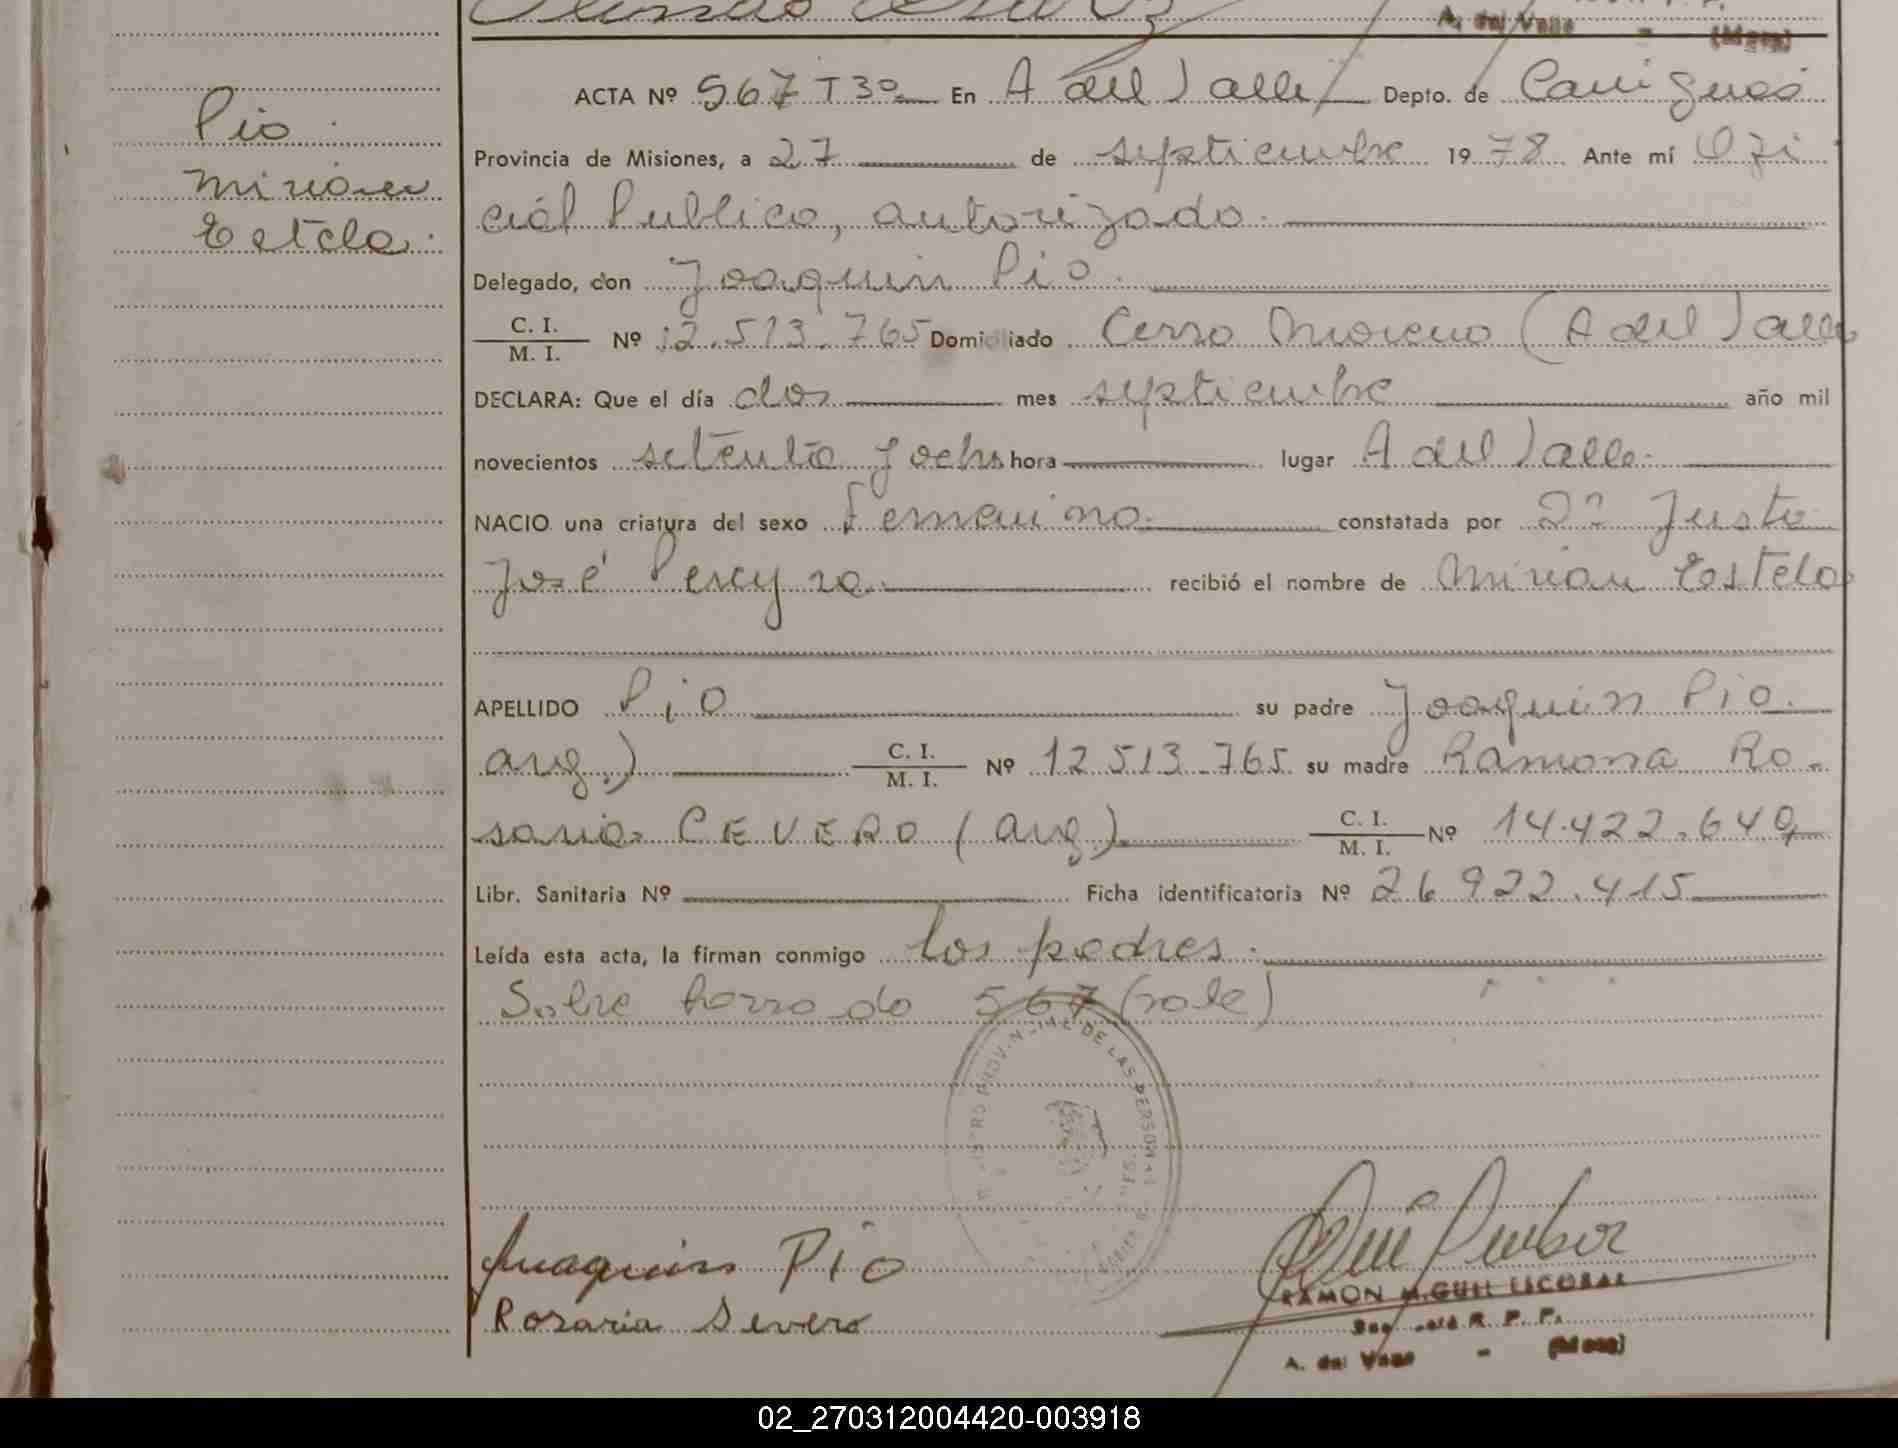 A. del Valle - (Mnes)
Pio
Mirian
Estela.
ACTA Nº 567 T3º En A del Valle Depto. de Cainguás
Provincia de Misiones, a 27 de septiembre 1978 Ante mí Ofi
cial Publico, autorizado.
Delegado, don Joaquin Pio.
C. I.
M. I. Nº 12.513.765 Domiciliado Cerro Moreno (A del Valle
DECLARA: Que el día dos mes septiembre año mil
novecientos setenta y ocho hora lugar A del Valle.
NACIO una criatura del sexo Femenino. constatada por Dº Justo
José Pereyra. recibió el nombre de Mirian Estela
APELLIDO Pio su padre Joaquin Pio.
arg.) C. I.
M. I. Nº 12.513.765 su madre Ramona Ro-
sario CEVERO (arg) C. I.
M. I. Nº 14.422.640
Libr. Sanitaria Nº Ficha identificatoria Nº 26.922.415
Leída esta acta, la firman conmigo los padres.
Sobre borrado 567 (vale)
DE LAS PERSONAS
Juaquin Pio
Rosaria Severo
RAMON MIGUEL ESCOBAR
R. P. P.
A. del Valle - (Mnes)
02_270312004420-003918